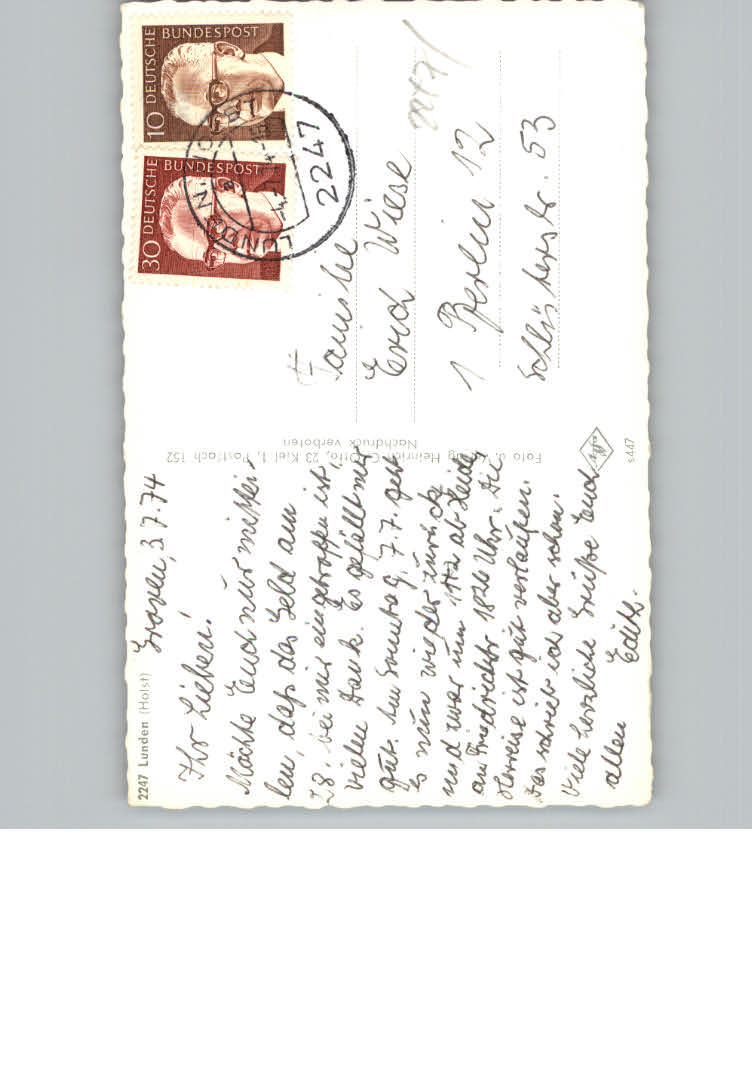 2247 Lunden (Holst)
Groven, 3.7.74
Ihr Lieben!
Möchte Euch nur mittei-
len, daß das Geld am
28. bei mir eingetroffen ist,
vielen Dank. Es gefällt mir
gut. Am Sonntag, 7.7. geht
es nun wieder zurück
und zwar um ab Heide,
an Friedrichstr 18 Uhr. Die
Herreise ist gut verlaufen.
Das schrieb ich aber schon.
Viele herzliche Grüße Euch
allen Edith.
Foto u. Verlag Heinrich C. Otto, 23 Kiel 1, Postfach 152
Nachdruck verboten
Agfa
s447
10 DEUTSCHE BUNDESPOST
30 DEUTSCHE BUNDESPOST
2247
LUNDEN
2247/
Familie
Erich Wiese
1 Berlin 12
Schlüterstr. 53